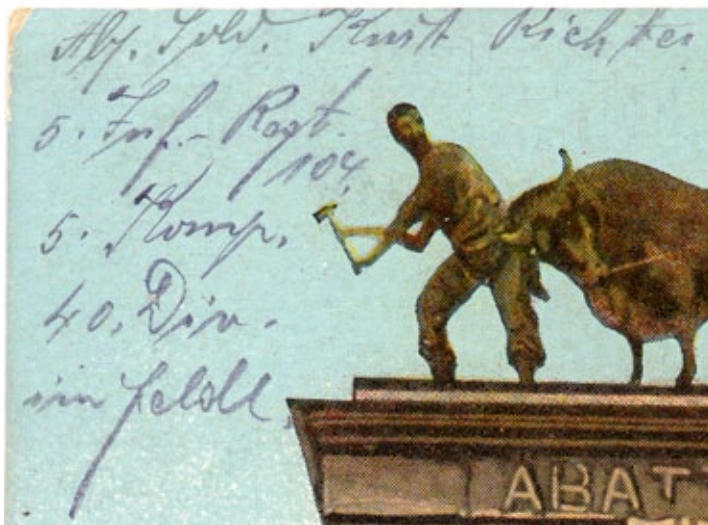 Abs. Sold. Kurt Richter
5. Inf.-Regt.
104,
5. Komp,
40. Div.
im felde,
ABATT